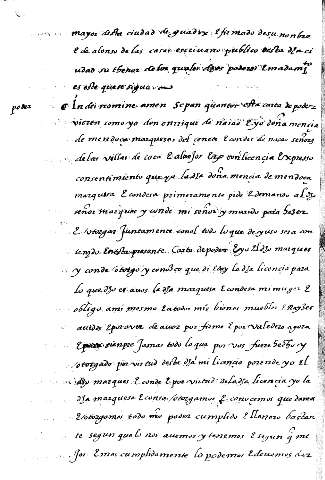 mayor desta ciudad de guadix E firmado de su nombre
E de alonso de las casas escrivano publico desta dha ci
udad su thenor de los quales dhos poderes E mandamyo
es este que se sigue
poder
In dei nomine amen Sepan quantos esta carta de poder
vieren como yo don enrrique de E yo doña mencia
de mendoça marqueses del cenete E condes de nasao señores
de las villas de coca E alaejos E yo con licencia Expreso
consentimiento que yo la dha doña mencia de mendoça
marquesa E condesa primeramente pido E demando al dho
señor marques y conde mi señor y marido para hazer
E otorgar Juntamente con el todo lo que de yuso sera con
tenydo En esta presente Carta de poder E yo El dho marques
y conde otorgo y conozco que di E doy la dha licencia para
lo que dho es a vos la dha marquesa E condesa mi muger E
obligo a mi mesmo E a todos mis bienes muebles E Rayzes
avidos E por aver de aver por firme E por valedero agora
E para sienpre Jamas todo lo que por vos fuere hecho y
otorgado por virtud desta dha mi licencia por ende yo El
dho marques E conde E por virtud de la dha licencia yo la
dha marquesa E condesa otorgamos E conoscemos que damos
E otorgamos todo nro poder cumplido E llenero bastan
te segun qual nos avemos y tenemos E segun q me
jor E mas cumplidamente lo podemos E devemos dar